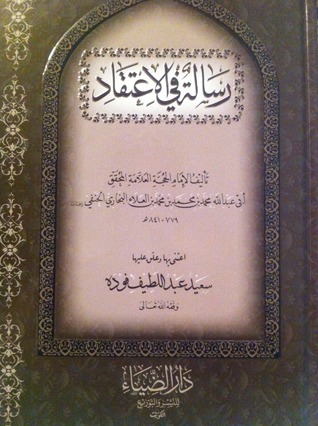 رسالة في الاعتقاد
تأليف الإمام الحجة العلامة المحقق
أبي عبد الله محمد بن محمد بن محمد بن العلاء البخاري الحنفي
٧٧٩-٨٤١ هـ
اعتنى بها وعلق عليها
سعيد عبد اللطيف فوده
وفقه الله تعالى
دار الضياء
للنشر والتوزيع
الكويت